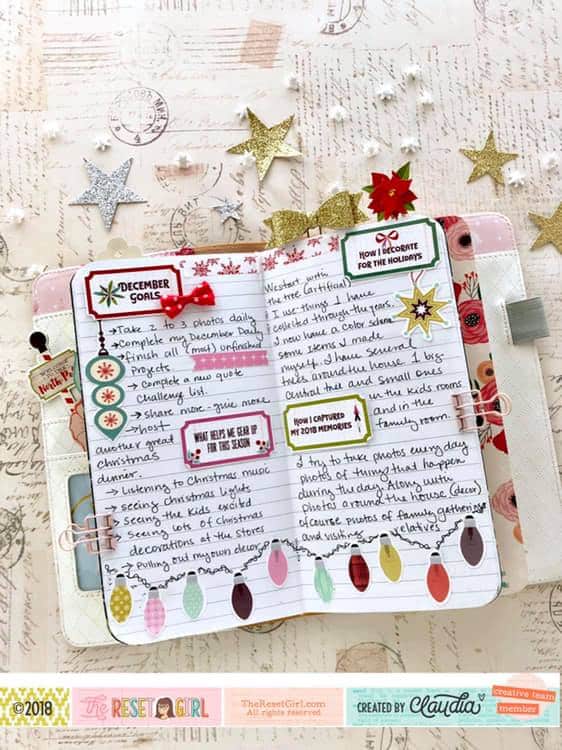 DECEMBER
GOALS
→ Take 2 to 3 photos daily
→ Complete my December Daily
→ finish all (most) unfinished
Projects
→ Complete a new quote
Challenge list.
→ share more - give more
→ host
another great
christmas
dinner.
WHAT HELPS ME GEAR UP
FOR THIS SEASON
→ Listening to Christmas music
→ seeing christmas lights
→ Seeing the kids excited
→ Seeing lots of christmas
decorations at the stores
→ Pulling out my own decor
HOW I DECORATE
FOR THE HOLIDAYS
We start with
the tree (artificial)
I use things I have
collected through the years.
I now have a color scheme
Some items I made
myself. I have several
trees around the house. 1 big
Central tree and small ones
in the kids rooms
and in the
family room.
HOW I CAPTURED
MY 2018 MEMORIES
I try to take photos every day
photos of things that happen
during the day. Along with
photos around the house (decor)
of course photos of family gatherings
and visiting relatives
North
©2018
The RESET GIRL
TheResetGirl.com
All rights reserved.
CREATED BY Claudia
creative team
member